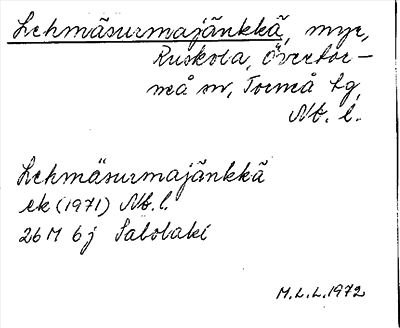 Lehmäsurmajänkkä, myr,
Ruskola, Övertor-
neå sn, Torneå tg,
Nb. l.
Lehmäsurmajänkkä
ek (1971) Nb. l.
26 M 6 j Salolaki
M. L. L. 1972